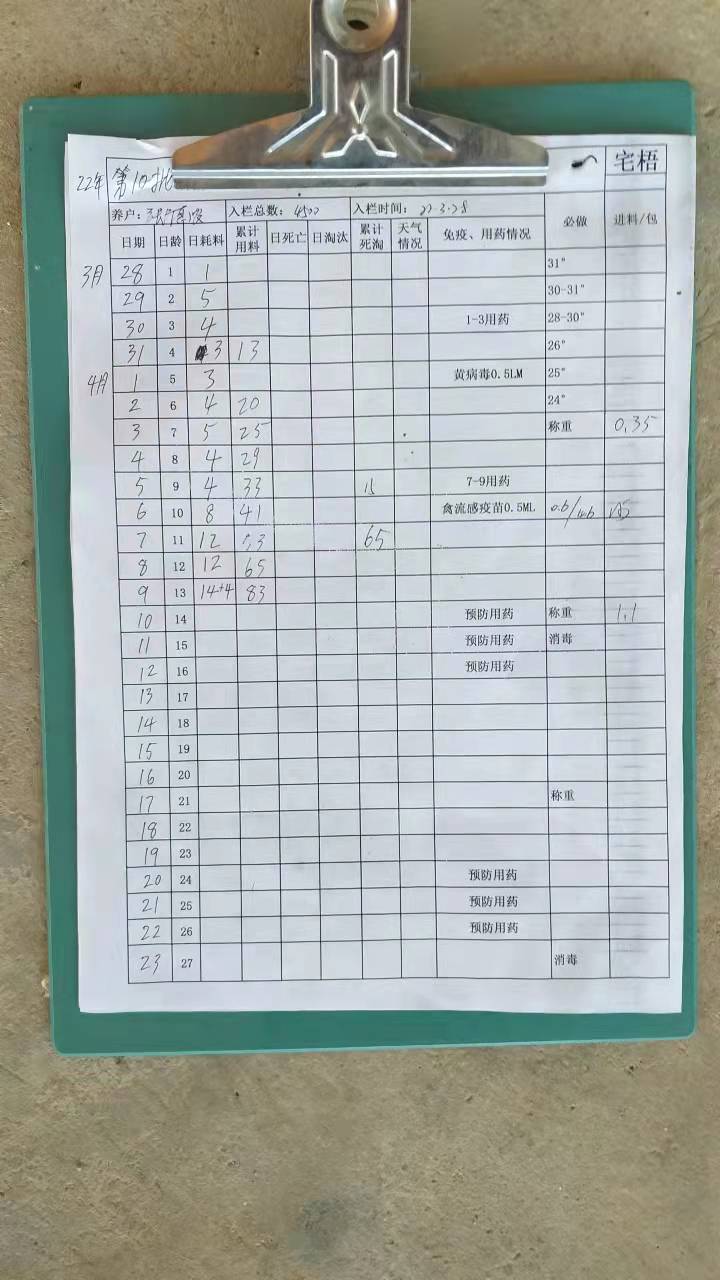 22年 第10批
宅梧
养户： 入栏总数：4500 入栏时间：22.3.28 必做 进料/包
日期 日龄 日耗料 累计用料 日死亡 日淘汰 累计死淘 天气情况 免疫、用药情况
3月 28 1 1 31°
29 2 5 30-31°
30 3 4 1-3用药 28-30°
31 4 3 13 26°
4月 1 5 3 黄病毒0.5LM 25°
2 6 4 20 24°
3 7 5 25 称重 0.35
4 8 4 29
5 9 4 33 15 7-9用药
6 10 8 41 禽流感疫苗0.5ML
7 11 12 53 65
8 12 12 65
9 13 14+4 83
10 14 预防用药 称重 1.1
11 15 预防用药 消毒
12 16 预防用药
13 17
14 18
15 19
16 20
17 21 称重
18 22
19 23
20 24 预防用药
21 25 预防用药
22 26 预防用药
23 27 消毒